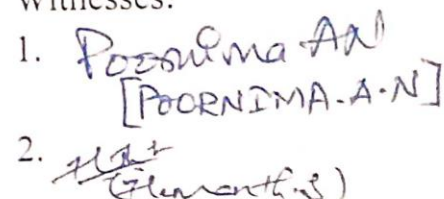 Witnesses:
1. Poornima AN
[POORNIMA.A.N]
2.
(Hemanth.S)